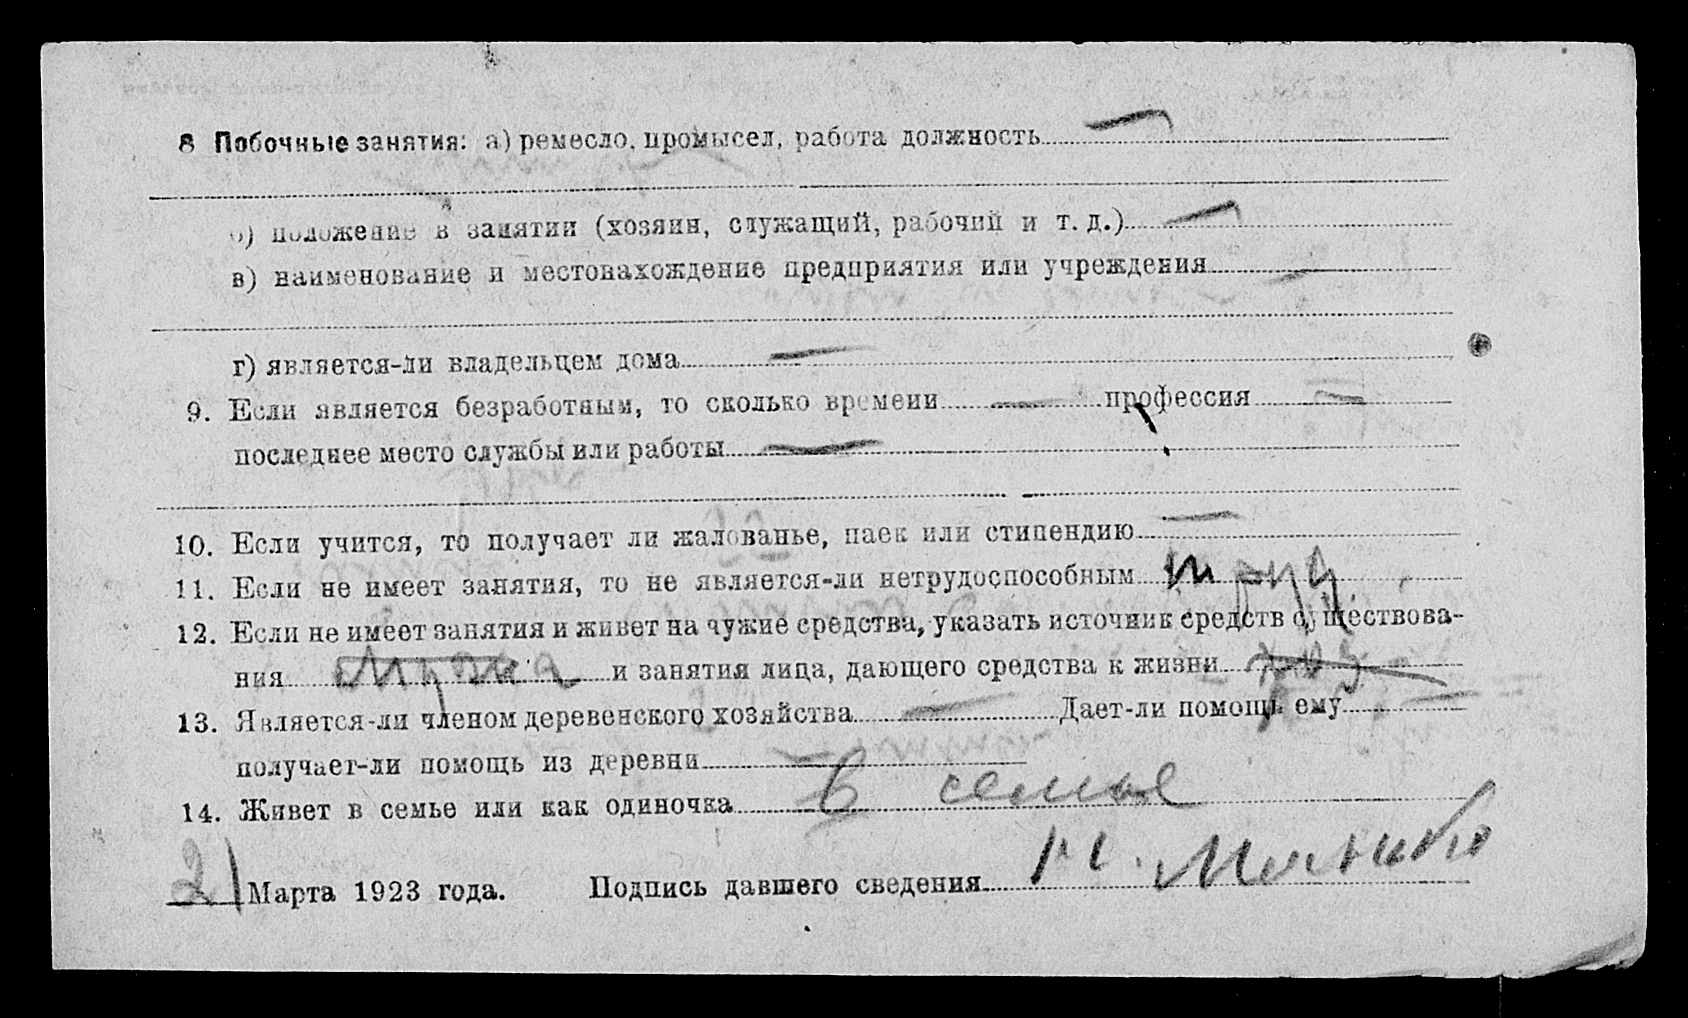 8 Побочные занятия: а) ремесло, промысел, работа должность —
б) положение в занятии (хозяин, служащий, рабочий и т. д.) —
в) наименование и местонахождение предприятия или учреждения —
г) является-ли владельцем дома —
9. Если является безработным, то сколько времени — профессия —
последнее место службы или работы —
10. Если учится, то получает ли жалованье, паек или стипендию —
11. Если не имеет занятия, то не является-ли нетрудоспособным труд
12. Если не имеет занятия и живет на чужие средства, указать источник средств существова-
ния мужа и занятия лица, дающего средства к жизни
13. Является-ли членом деревенского хозяйства — Дает-ли помощь ему —
получает-ли помощь из деревни —
14. Живет в семье или как одиночка в семье
21 Марта 1923 года. Подпись давшего сведения